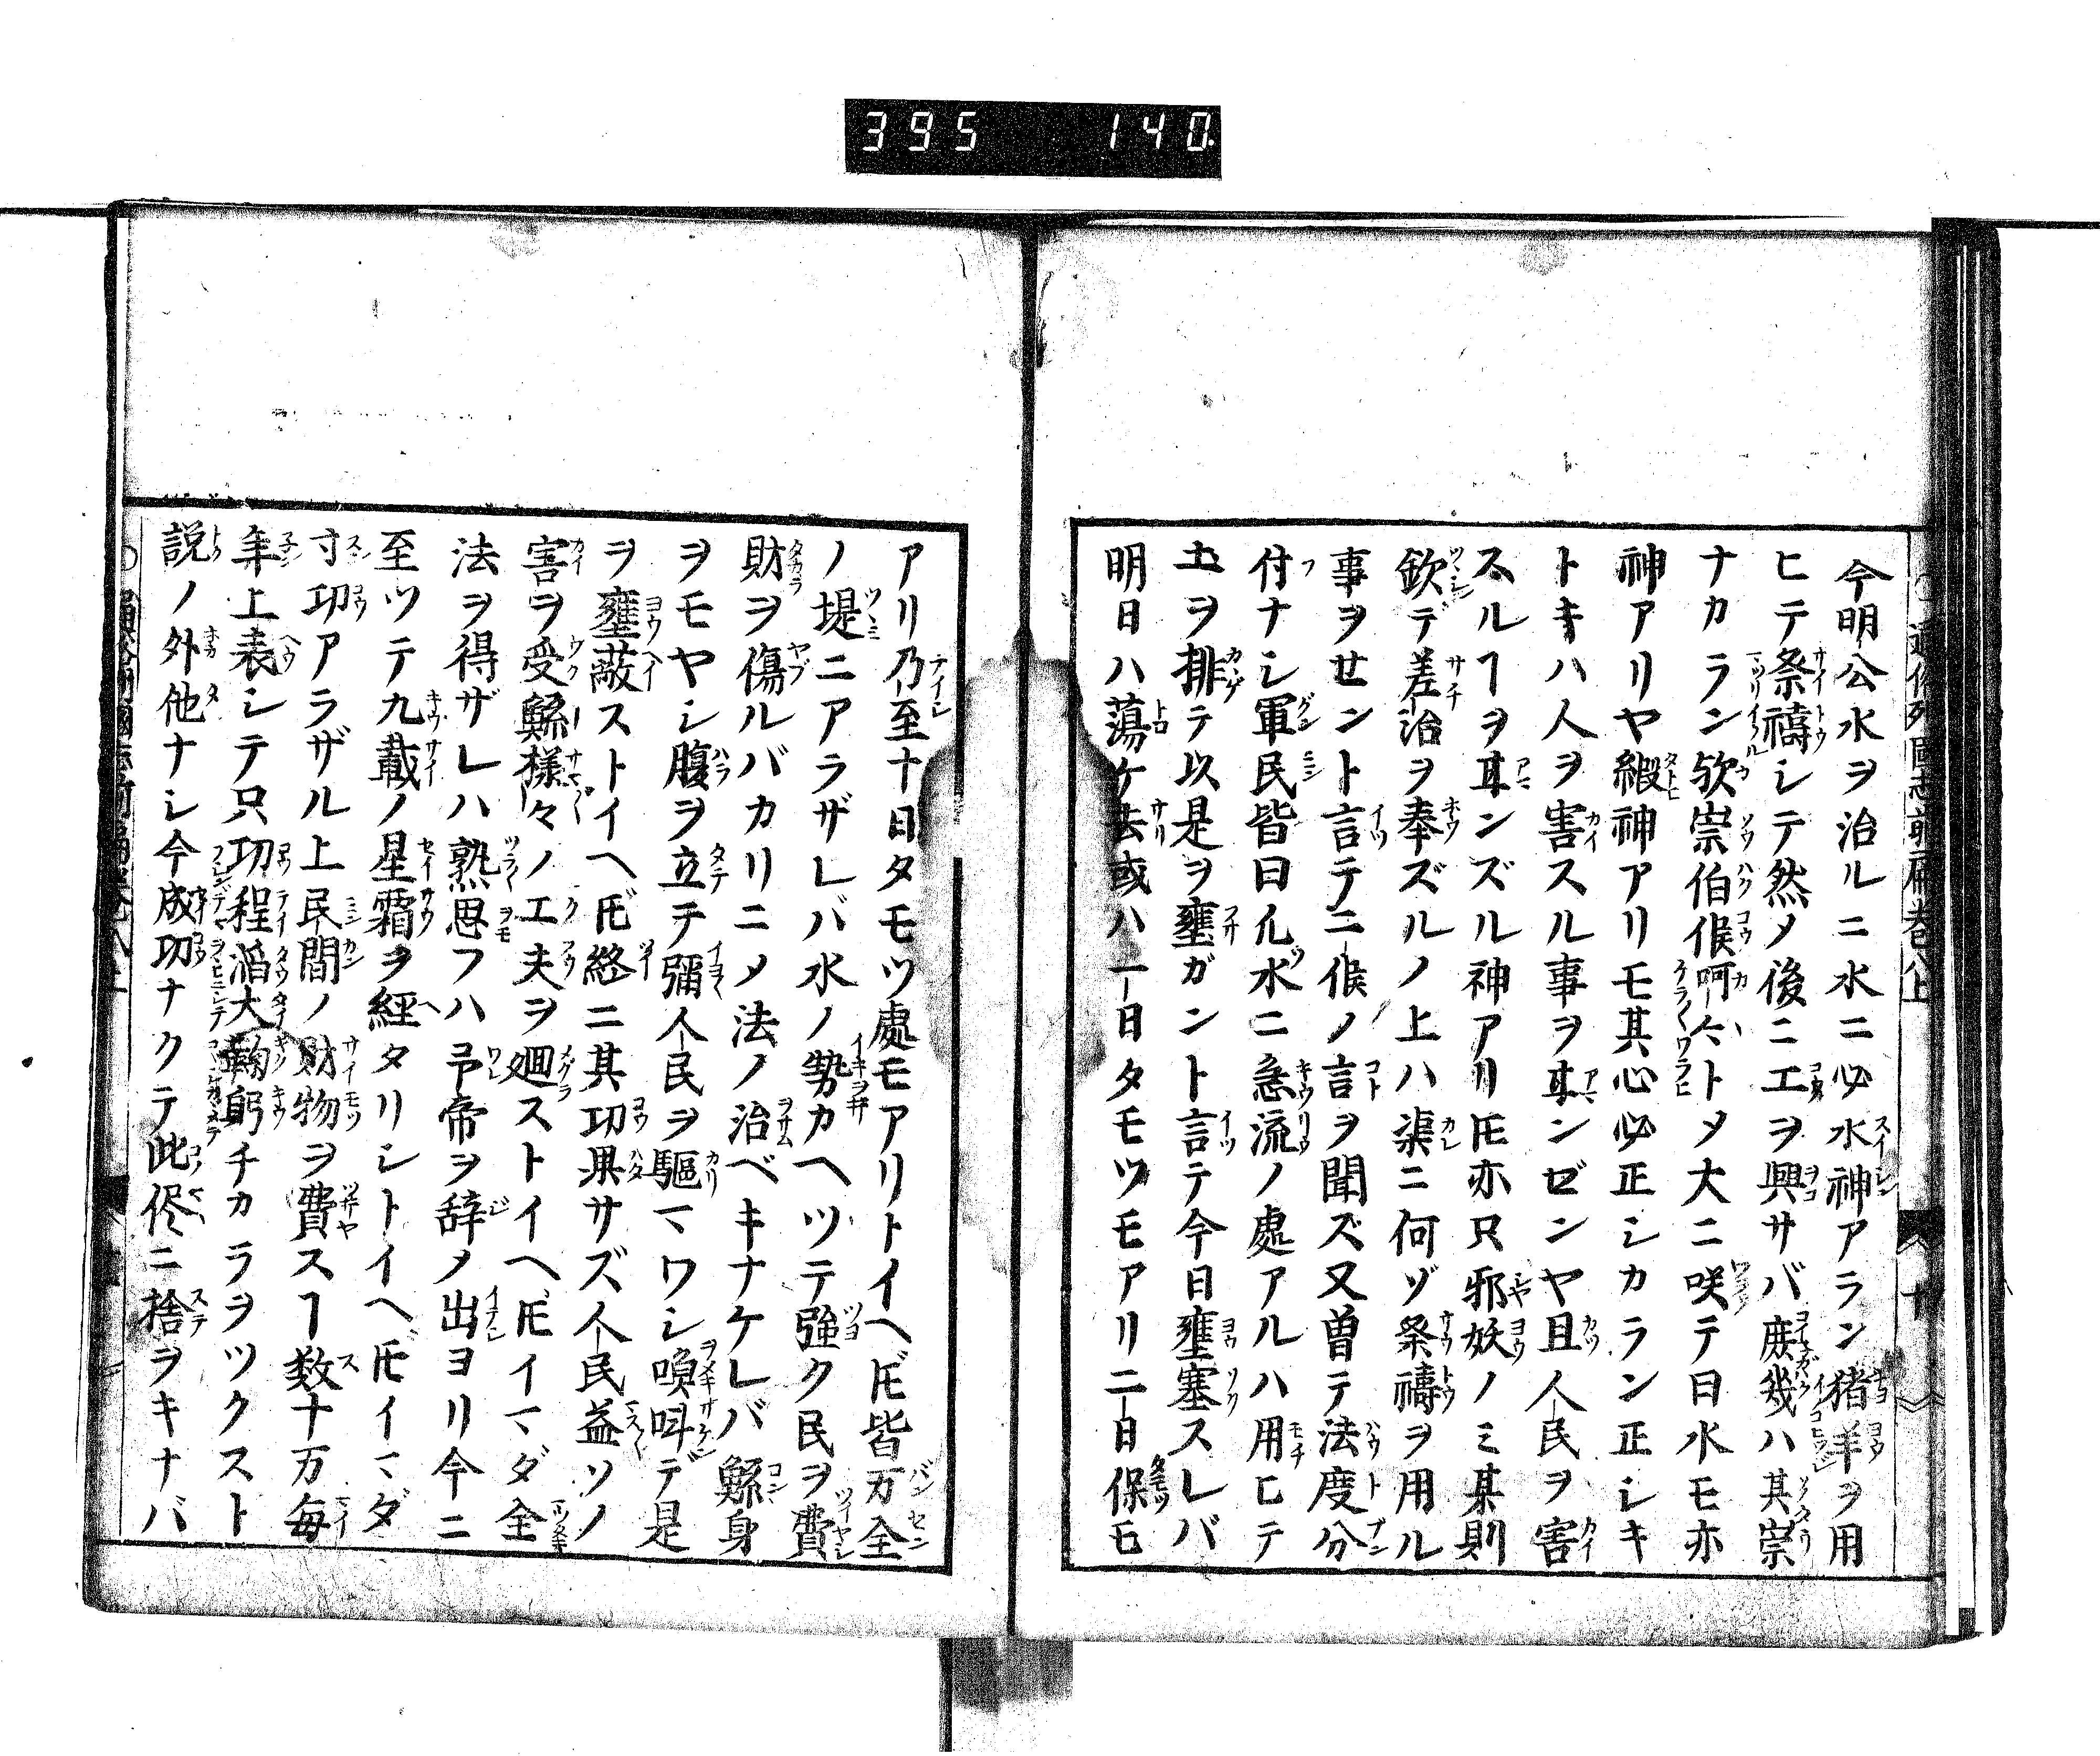 395 140
今明公水ヲ治ルニ水ニ必水神アラン猪羊ヲ用
ヒテ祭禱シテ然メ後ニエヲ興サバ庶幾ハ其崇
ナカラン欤崇伯侯呵々トメ大ニ咲テ曰水モ亦
神アリヤ縦神アリモ其心必正シカラン正シキ
トキハ人ヲ害スル事ヲ耳ンゼンヤ且人民ヲ害
スルヿヲ耳ンズル神アリ𪜈亦只邪妖ノミ某則
欽デ差治ヲ奉ズルノ上ハ渠ニ何ゾ祭禱ヲ用ル
事ヲせント言テ二侯ノ言ヲ聞ズ又曽テ法度分
付ナシ軍民皆曰凡水ニ急流ノ處アルハ用ヒテ
土ヲ排テ以是ヲ壅ガント言テ今日壅塞スレバ
明日ハ蕩ケ去或ハ一日タモツモアリ二日保モ
アリ乃至十日タモツ處モアリトイヘ𪜈皆万全
ノ堤ニアラザレバ水ノ勢カヘツテ強ク民ヲ費
財ヲ傷ルバカリニメ法ノ治ベキナケレバ鯀身
ヲモヤシ腹ヲ立テ彌人民ヲ驅マワシ喚呌デ是
ヲ壅蔽ストイヘ𪜈終ニ其功果サズ人民益ソノ
害ヲ受鯀様々ノ工夫ヲ廻ストイヘ𪜈イマダ全
法ヲ得ザレハ熟思フハ予帝ヲ辞メ出ヨリ今ニ
至ツテ九載ノ星霜ヲ經タリシトイヘ𪜈イマダ
寸功アラザル上民間ノ財物ヲ費スヿ数十万毎
年上表シテ只功程滔大鞠躬チカラヲツクスト
説ノ外他ナシ今成功ナクテ此侭ニ捨ラキナバ